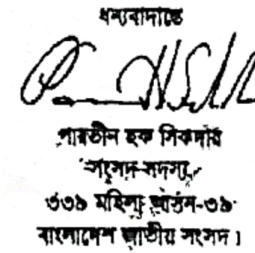 ধন্যবাদান্তে
পারভীন হক সিকদার
সংসদ সদস্য
৩৩৯ মহিলা আসন-৩৯
বাংলাদেশ জাতীয় সংসদ।